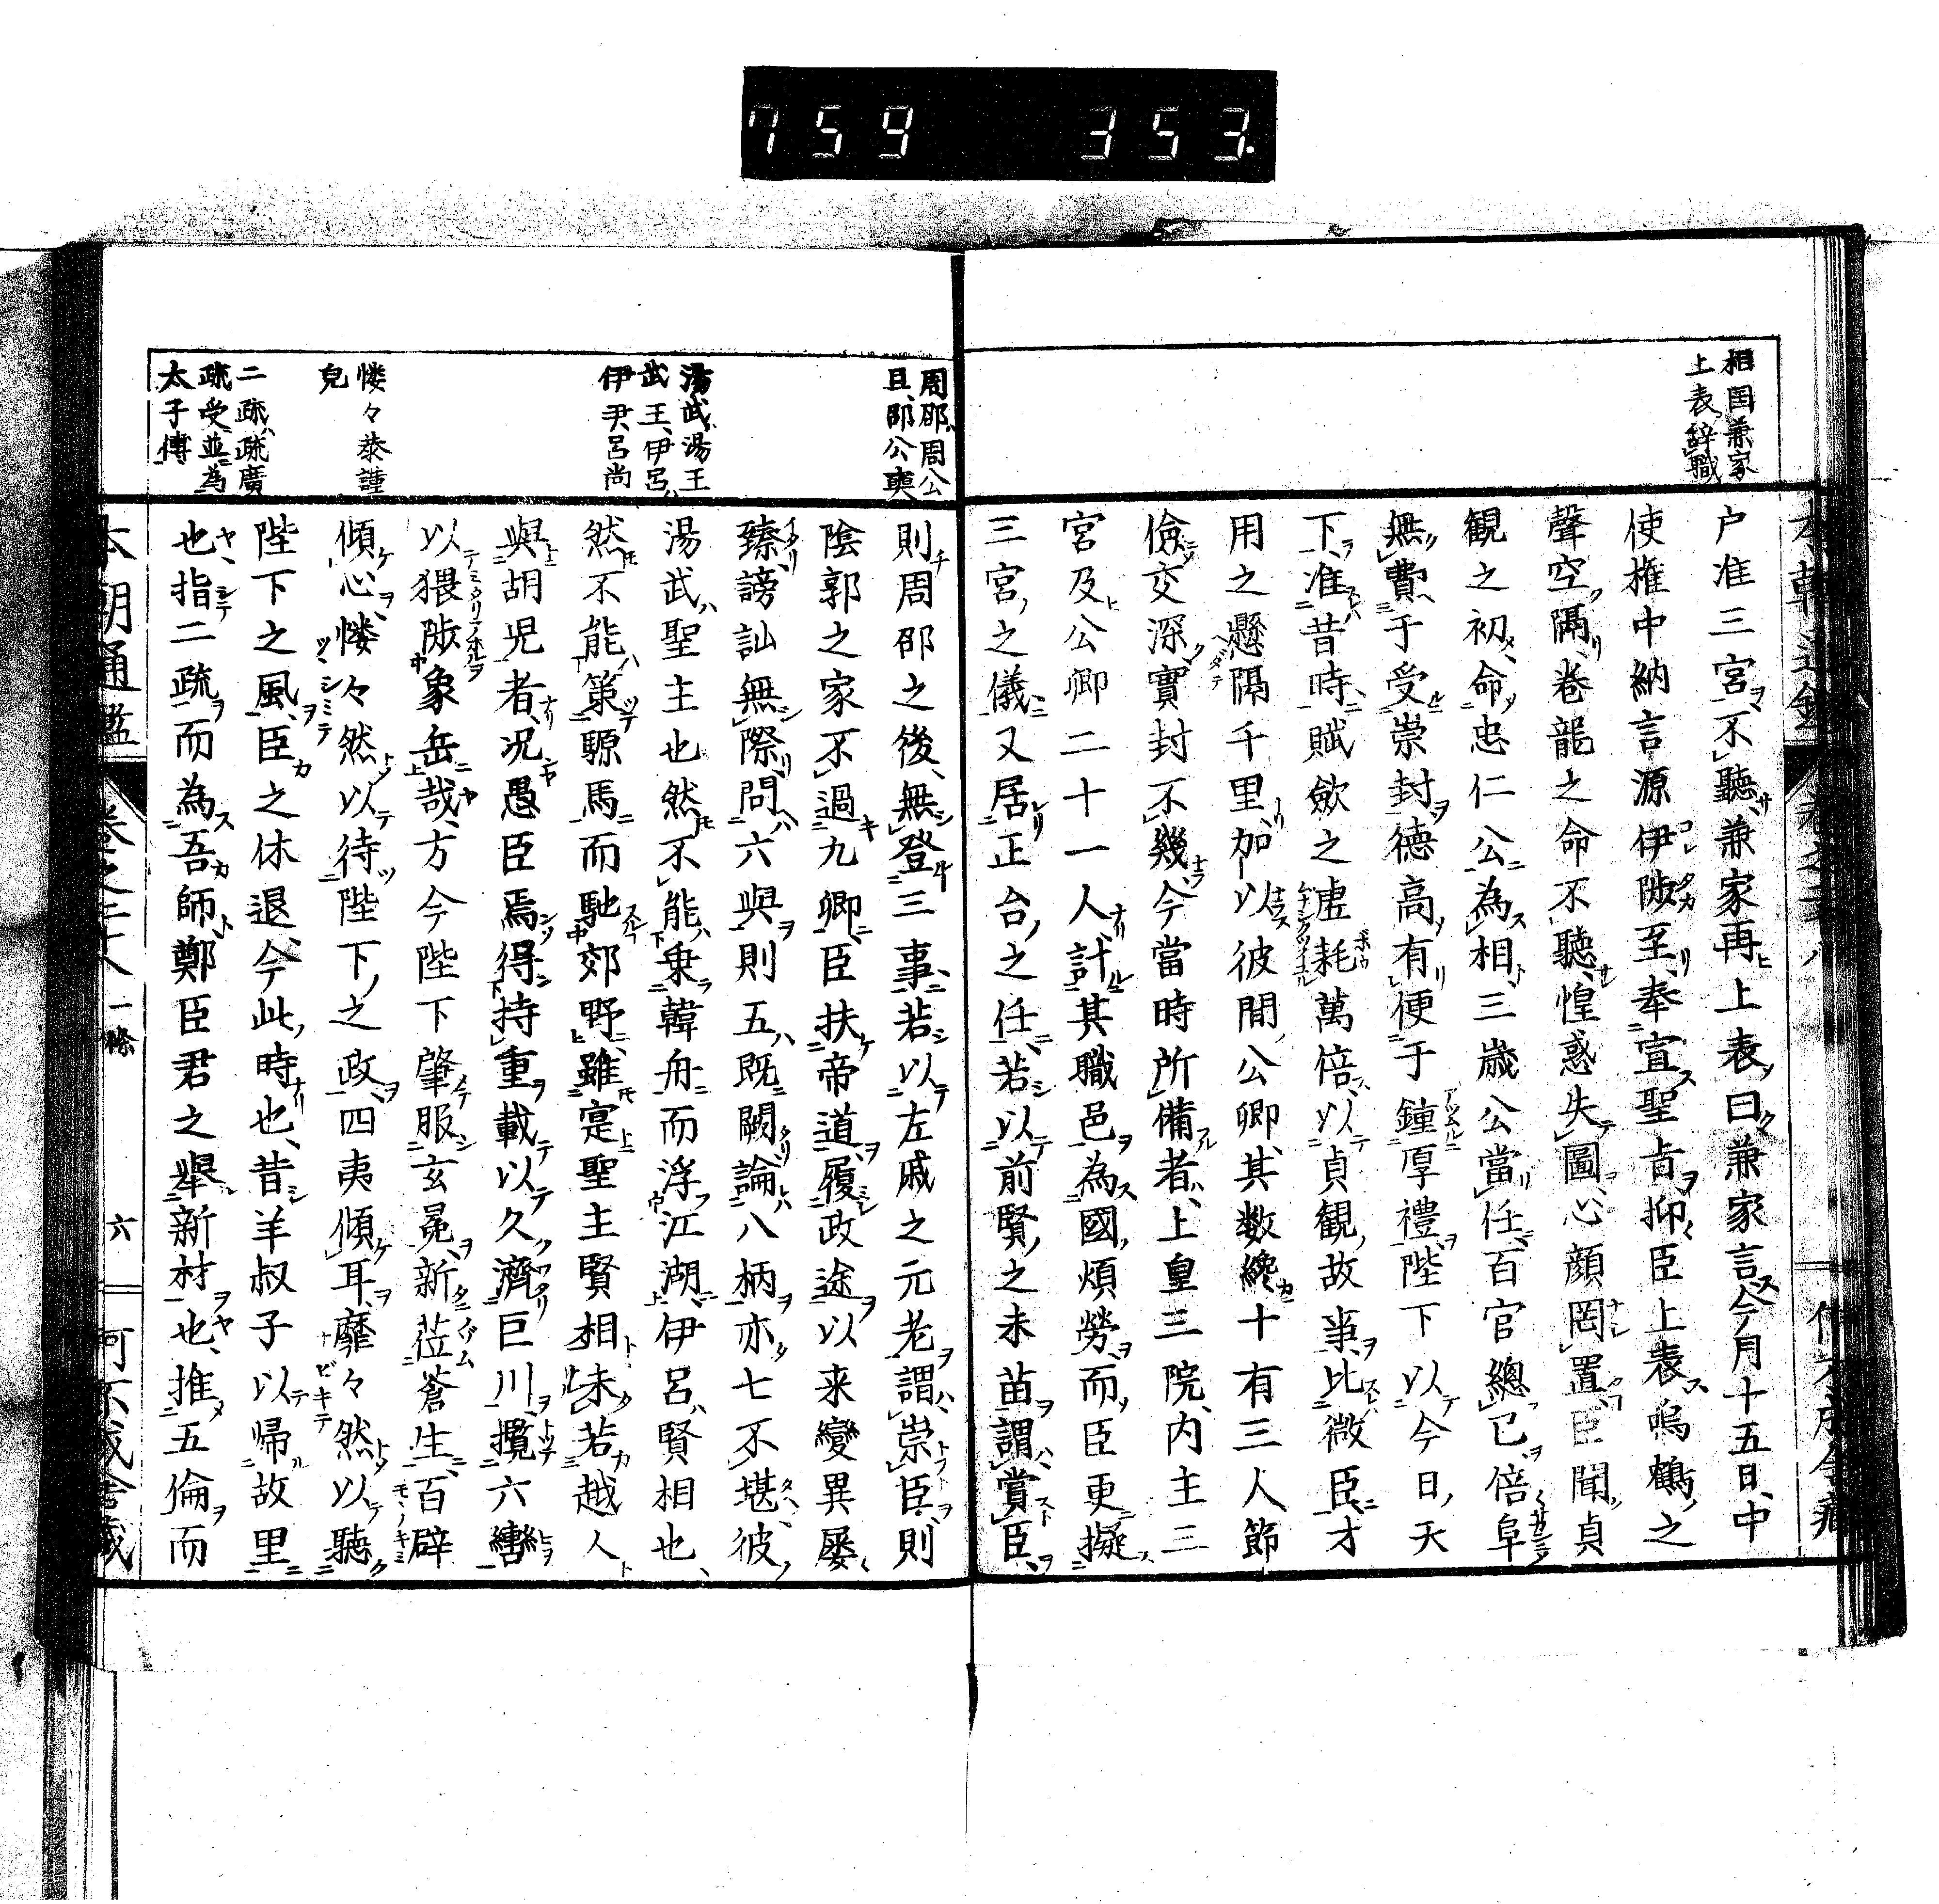 759 353.
相国兼家
上表辭職
戸准三宮不聽兼家再上表曰兼家言今月十五日中
使権中納言源伊陟至奉宣聖旨抑臣上表嗚鶴之
聲空隔巻龍之命不聽惶惑失圖心顔罔置臣聞貞
観之初命忠仁公為相三歳公當任百官總已倍阜
無費于受崇封徳高有便于鍾厚禮陛下以今日天
下准昔時賦歛之虚耗萬倍以貞観故事比微臣才
用之懸隔千里加以彼間公卿其数纔十有三人節
儉交深實封不幾今當時所備者上皇三院内主三
宮及公卿二十一人計其職邑為國煩勞而臣更擬
三宮之儀又居正台之任若以前賢之未苗謂賞臣
周邵周公
旦邵公奭
湯武湯王
武王伊呂
伊尹呂尚
慺々恭謹
皃
二疏疏廣
疏受並為
太子傅
則周邵之後無登三事若以左戚之元老謂崇臣則
陰郭之家不過九卿臣扶帝道履政途以来變異屡
臻謗訕無際問六與則五既闕論八柄亦七不堪彼
湯武聖主也然不能乗韓舟而浮江湖伊呂賢相也
然不能策騵馬而馳郊野雖寔聖主賢相未若越人
與胡児者况愚臣焉得持重載以久濟巨川攬六轡
以猥陟象岳哉方今陛下肇服玄冕新莅蒼生百辟
傾心慺々然以待陛下之政四夷傾耳靡々然以聽
陛下之風臣之休退今此時也昔羊叔子以帰故里
也指二疏而為吾師鄭臣君之舉新材也推五倫而
本朝通鑑 巻之二十八 一條 六